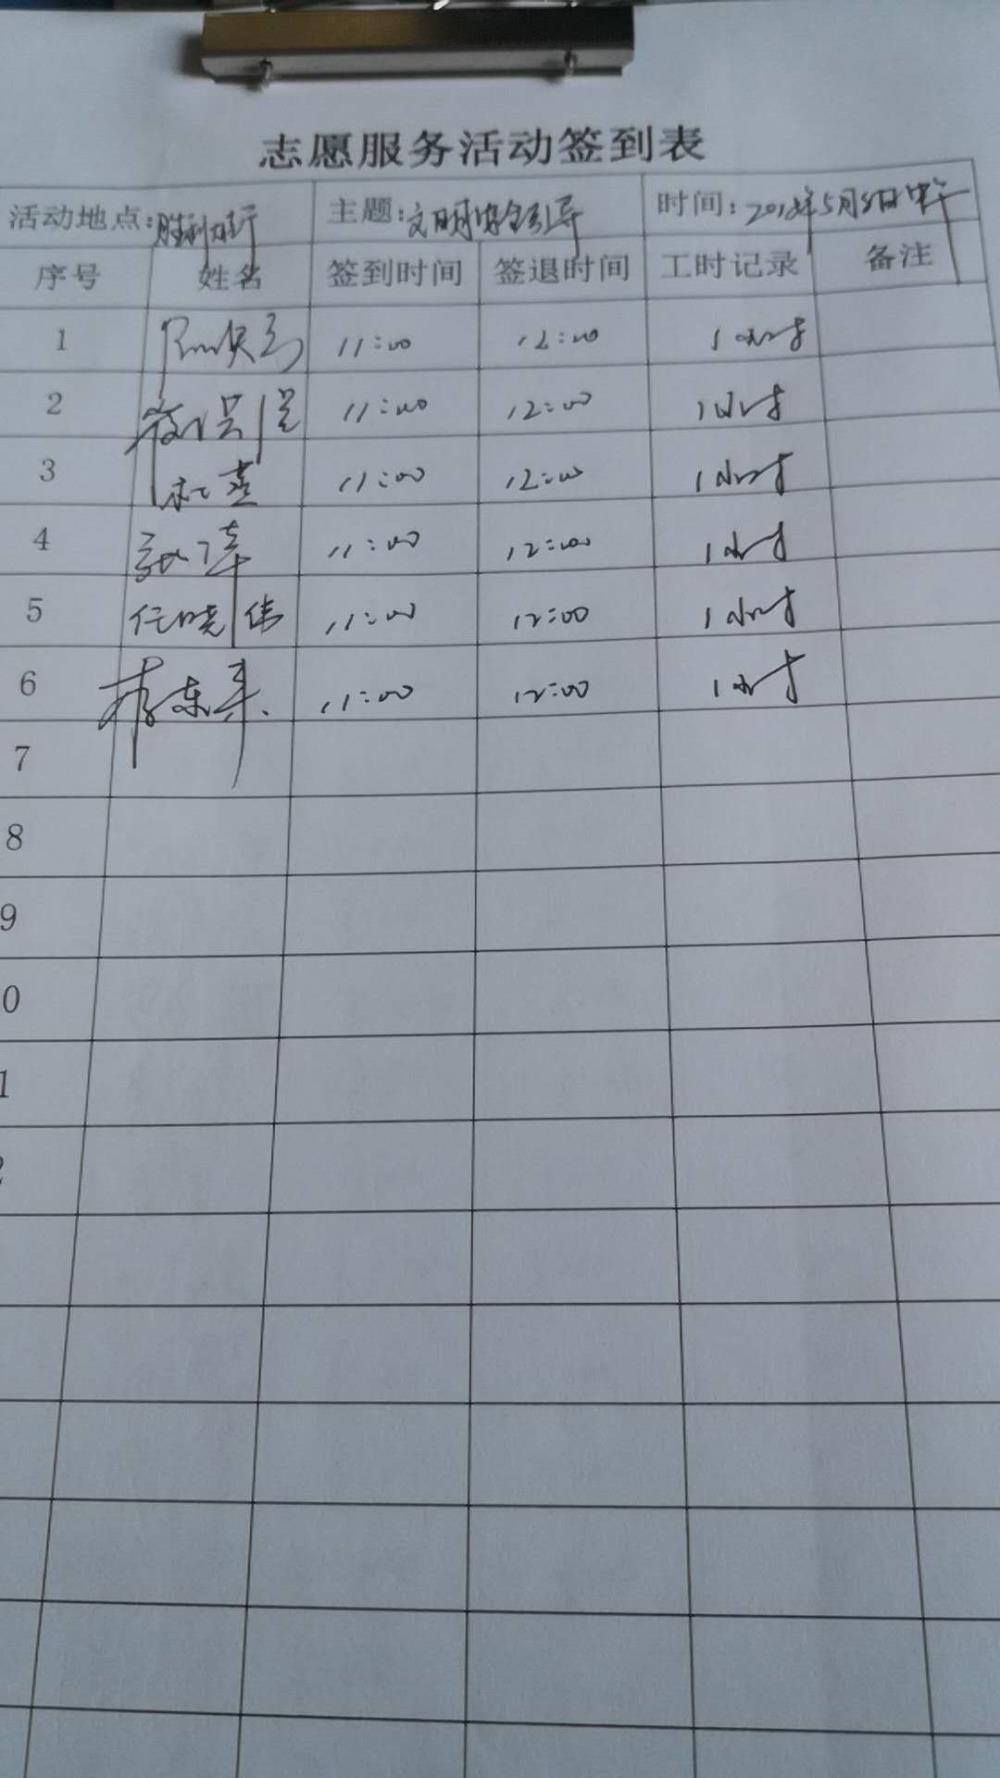 志愿服务活动签到表
活动地点: 主题:文明安全引导 时间:2018年5月8日中午
序号 姓名 签到时间 签退时间 工时记录 备注
1 11:00 12:00 1小时
2 11:00 12:00 1小时
3 11:00 12:00 1小时
4 11:00 12:00 1小时
5 任晓伟 11:00 12:00 1小时
6 11:00 12:00 1小时
7
8
9
0
1
2